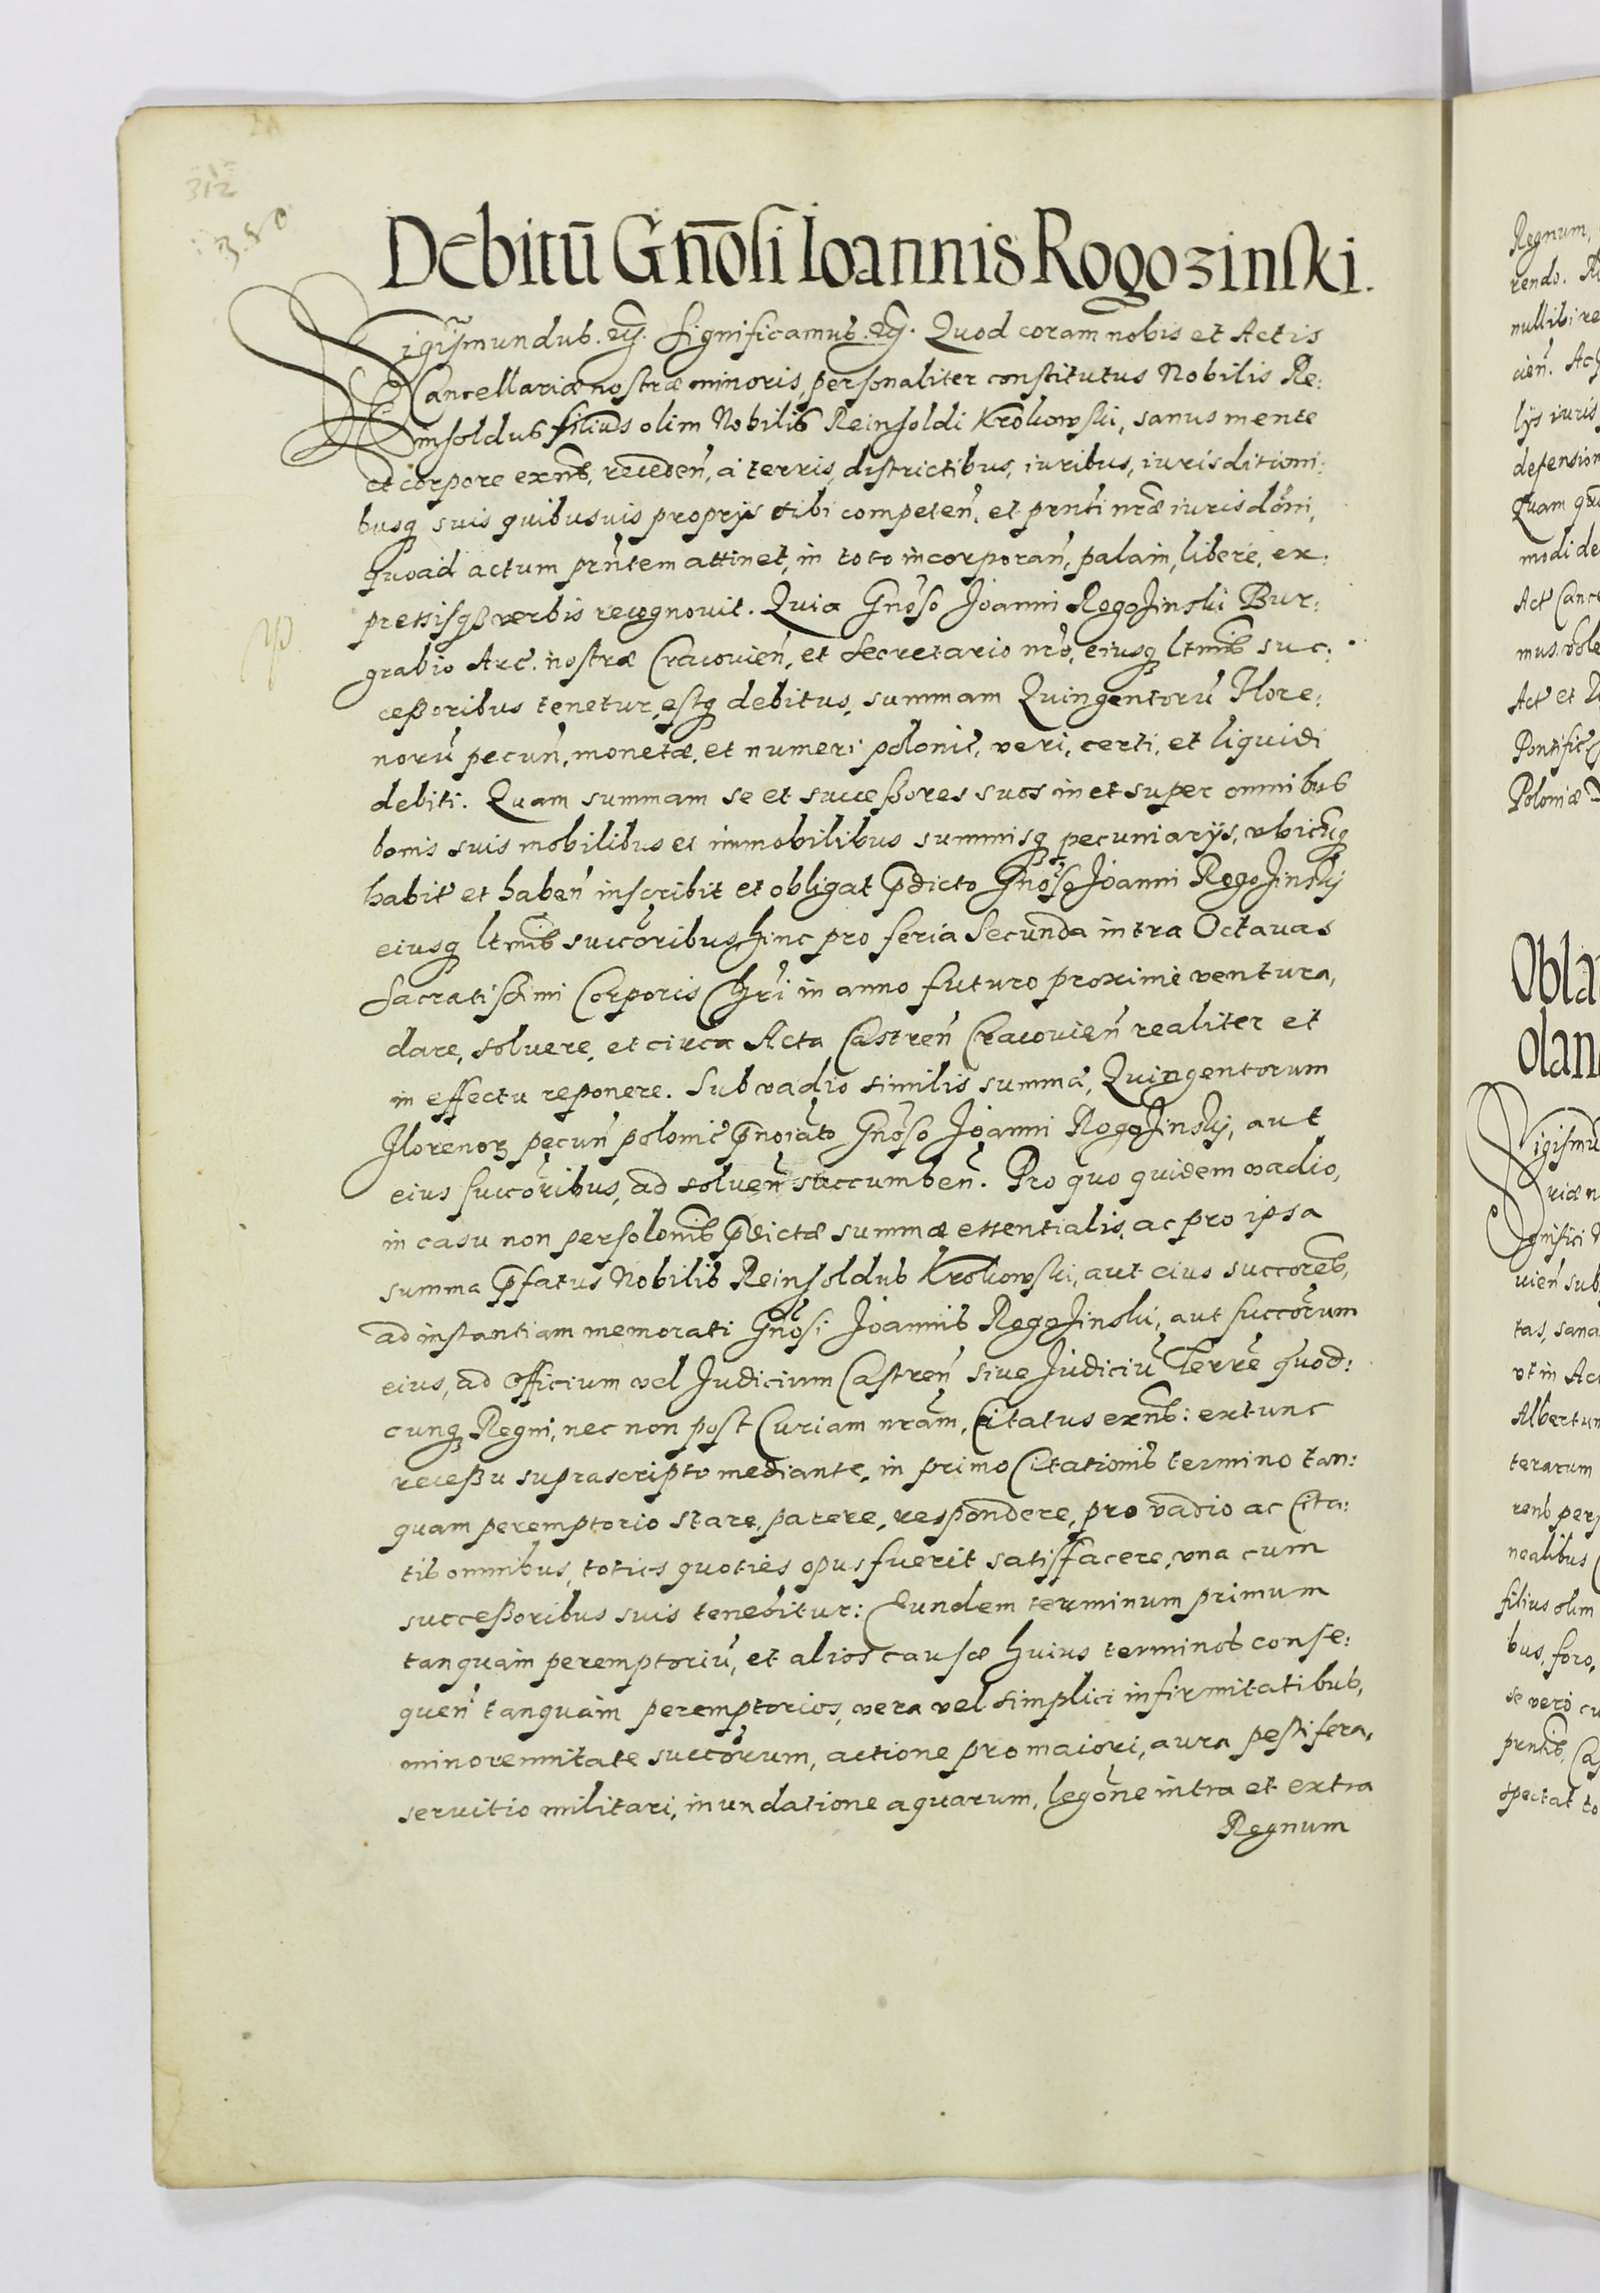 312
380
Debitū Gnōsi Ioannis Rogozinski.
Sigismundus. etc. Significamus. etc. Quod coram nobis et Actis
Cancellariæ nostræ minoris, personaliter constitutus Nobilis Re:
insoldus filius olim Nobilis Reinsoldi Krokowski, sanus mente
et corpore exn̄s, receden̄, a terris, districtibus, iuribus, iurisditioni:
busq suis quibusuis proprijs sibi competen̄, et prn̄ti nr̄æ iurisdōni,
quoad actum prn̄tem attinet, in toto incorporan̄, palam, libere, ex:
pressisqз verbis recognouit. Quia Gnōso Joanni Rogozinski Bur:
grabio Arc. nostræ Cracouien̄, et Secretario nrō, eiusq ltm̄is suc:
ceßoribus tenetur, estq debitus, summam Quingentorū Flore:
norū pecun̄, monetæ, et numeri polonic̄, veri, certi, et liquidi
debiti. Quam summam se et succeßores suos in et super omnibus
bonis suis mobilibus et immobilibus summisq pecuniarijs, vbicūq
habit̄ et haben̄ inscribit et obligat p̄dicto Gnōso Joanni Rogozinskij
eiusq ltm̄is succōribus hinc pro feria Secunda intra Octauas
Sacratißimi Corporis Chri̅ in anno futuro proximè ventura,
dare, soluere, et circa Acta Castren̄ Cracouien̄ realiter et
in effectu reponere. Sub vadio similis summæ, Quingentorum
Florenoꝝ pecun̄ polonic̄ p̄noiāto Gnōso Joanni Rogozinskij, aut
eius succōribus, ad soluen̄ succumben̄. Pro quo quidem vadio,
in casu non persolōnis p̄dictæ summæ essentialis, ac pro ipsa
summa p̄fatus Nobilis Reinsoldus Krokowski, aut eius succorēs,
ad instantiam memorati Gnōsi Joannis Rogozinski, aut succōrum
eius, ad Officium vel Judicium Castren̄ siue Judiciū Terrē quod:
cunq Regni, nec non post Curiam nrām, Citatus exn̄s: extunc
receßu suprascripto mediante, in primo Citationis termino tan:
quam peremptorio stare, parere, respondere, pro vadio ac Cita:
tis omnibus, toties quoties opus fuerit satisfacere, vna cum
succeßoribus suis tenebitur: Eundem terminum primum
tanquam peremptoriū, et alios causæ huius terminos conse:
quen̄ tanquam peremptorios, vera vel simplici infirmitatibus,
minorennitate succōrum, actione pro maiori, aura pestifera,
seruitio militari, inundatione aquarum, legōne intra et extra
Regnum
Regnum,
rendo.
nullibi re
cien̄. Ac
lijs iuris
defension
Quam
modi de
Act̄ Cance
mus. vole
Act̄ et
Pontific̄
Poloniæ
Obla
olan
Sigismu
riæ n
gnifici
uien̄ sub
tas, sana
vt in Act
Albertum
terarum
rens pers
nealibus
filius olim
bus, foro,
se vero cu
prnt̄is,
spectat to